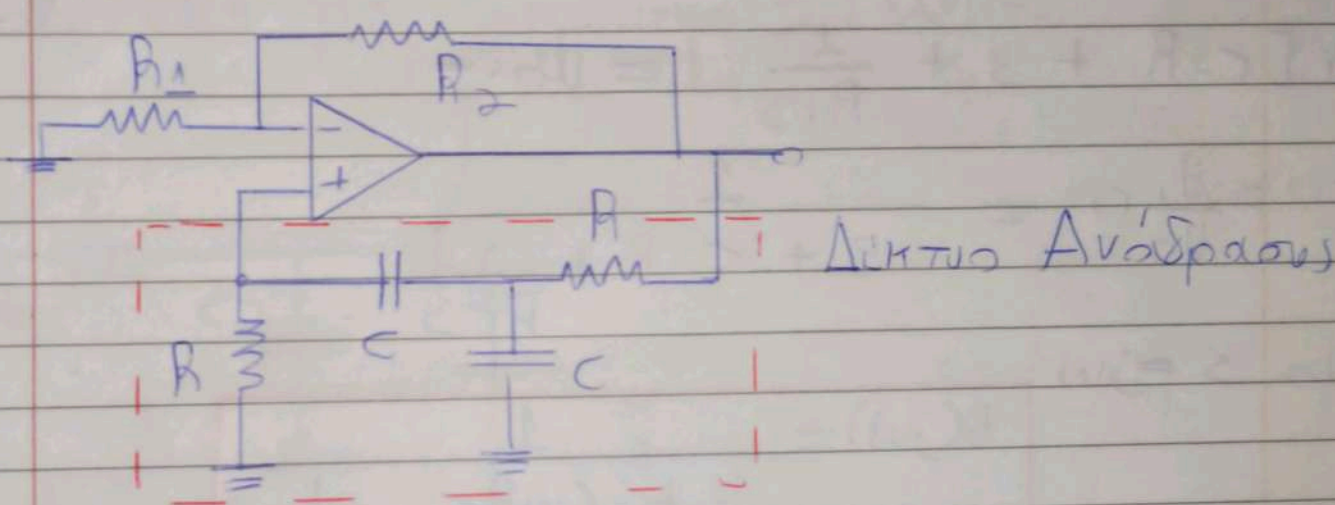 R1
R2
-
+
R
Δίκτυο Ανάδρασης
R
C
C